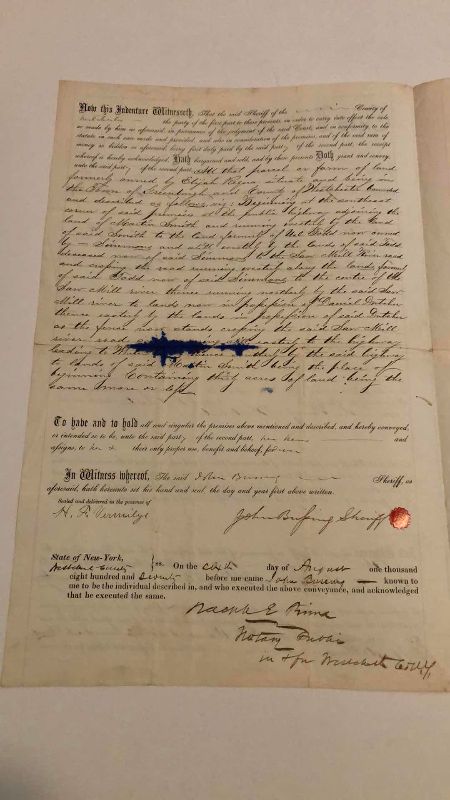 Now this Indenture Witnesseth, That the said Sheriff of the County of
the party of the first part to these presents, in order to carry into effect the sale
so made by him as aforesaid, in pursuance of the judgment of the said Court, and in conformity to the
statute in such case made and provided, and also in consideration of the premises, and of the said sum of
money so bidden as aforesaid, being first duly paid by the said party of the second part, the receipt
whereof is hereby acknowledged, Hath bargained and sold, and by these presents Doth grant and convey,
unto the said party of the second part, All that parcel or farm of land
formerly owned by Elijah situate and being in
the Town of Greenburgh and County of Westchester bounded
and described as follows viz: Beginning at the southeast
corner of said premises at the public highway adjoining the
land of Martin Smith and running westerly by the land
of said Smith to the land formerly of now owned
by Simmons and still westerly by the lands of said
deceased now of said Simmons to the Saw Mill River road
and crossing the road running westerly along the lands formerly
of said now of said Simmons to the centre of the
Saw Mill river thence running northerly by the said Saw
Mill river to lands now in possession of Daniel
thence easterly by the lands in possession of said
as the fence now stands crossing the said Saw Mill
river road easterly to the highway
leading to thence by the said highway
to lands of said Martin Smith being the place of
beginning Containing thirty acres of land being the
same more or less
To have and to hold all and singular the premises above mentioned and described, and hereby conveyed,
or intended so to be, unto the said party of the second part, her heirs and
assigns, to her & their only proper use, benefit and behoof, forever
In Witness whereof, The said John Bussing Sheriff, as
aforesaid, hath hereunto set his hand and seal, the day and year first above written.
Sealed and delivered in the presence of
H. F. Vermilye
John Bussing Sheriff
State of New-York,
Westchester County ss. On the sixth day of August one thousand
eight hundred and seventy before me came John Bussing known to
me to be the individual described in, and who executed the above conveyance, and acknowledged
that he executed the same.
E. Prime
Notary Public
in & for Westchester Co N.Y.